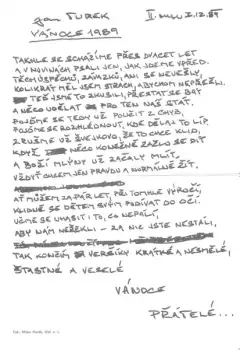 Jan TUREK
VÁNOCE 1989
TAKHLE SE SCHÁZÍME PŘES DVACET LET
A V NOVINÁCH PSALI JEN, JAK JDEME VPŘED.
TĚCH ÚSPĚCHŮ, ZÁVAZKŮ, ANI SE NEVEŠLY,
KOLIKRÁT MĚL JSEM STRACH, ABYCHOM NEPŘEŠLI.
TEĎ JSME TO ZKUSILI, PŘESTAT SE BÁT
A NĚCO UDĚLAT PRO TEN NÁŠ STÁT.
POJĎME SE TEDY UŽ POUČIT Z CHYB,
POJĎME SE ROZHLÉDNOUT, KDE DĚLAJ TO LÍP.
ZRUŠME UŽ ŠVEJKOVO, ŽE TO CHCE KLID,
KDYŽ NĚCO KONEČNĚ ZAČLO SE DÍT
A BOŽÍ MLÝNY UŽ ZAČALY MLÍT,
VŽDYŤ CHCEM JEN PRAVDU A NORMÁLNĚ ŽÍT.
AŤ MŮŽEM ZA PÁR LET, PŘI TOMHLE VÝROČÍ,
KLIDNĚ SE DĚTEM SVÝM PODÍVAT DO OČÍ.
UČME SE UHASIT I TO, CO NEPÁLÍ,
ABY NÁM NEŘEKLI – ZA NIC JSTE NESTÁLI.
TAK KONČÍM VERŠÍKY KRÁTKÉ A NESMĚLÉ,
ŠŤASTNÉ A VESELÉ
VÁNOCE
PŘÁTELÉ...